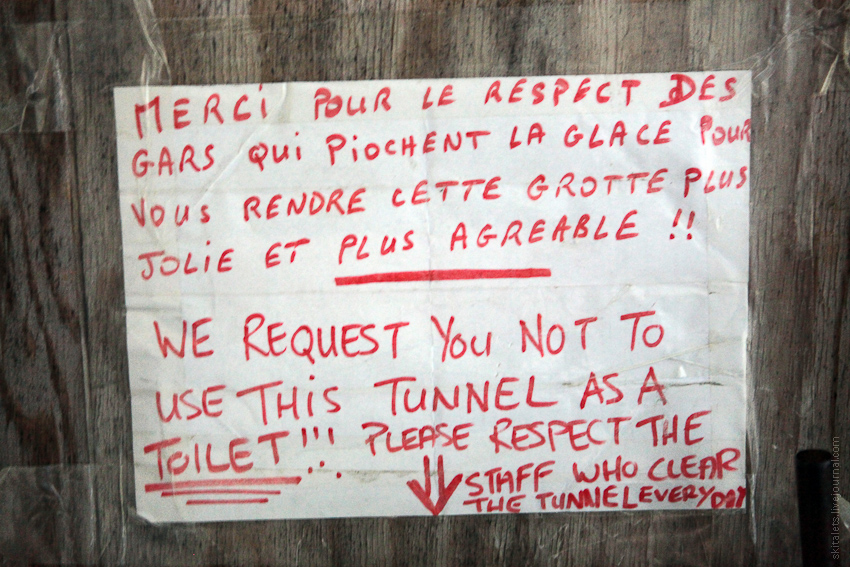 MERCi POUR LE RESPECT DES
GARS QUi PiOCHENT LA GLACE POUR
VOUS RENDRE CETTE GROTTE PLUS
JOLiE ET PLUS AGREABLE !!
WE REQUEST YOU NOT TO
USE THiS TUNNEL AS A
TOiLET!!! PLEASE RESPECT THE
STAFF WHO CLEAR
THE TUNNEL EVERYDAY
skitalets.livejournal.com